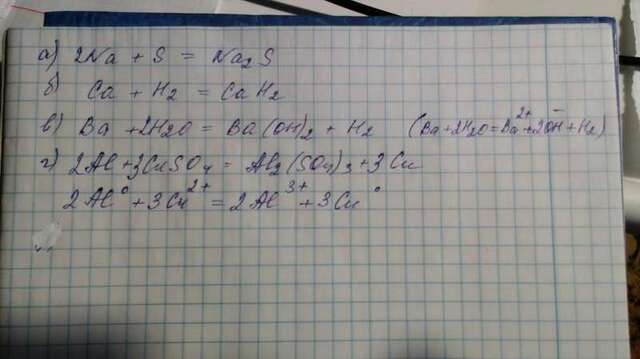 а) 2Na + S = Na₂S
б) Ca + H₂ = CaH₂
в) Ba + 2H₂O = Ba(OH)₂ + H₂ (Ba+2H₂O=Ba²⁺+2OH⁻+H₂)
г) 2Al+3CuSO₄ = Al₂(SO₄)₃+3Cu
2Al⁰ + 3Cu²⁺ = 2Al³⁺ + 3Cu⁰